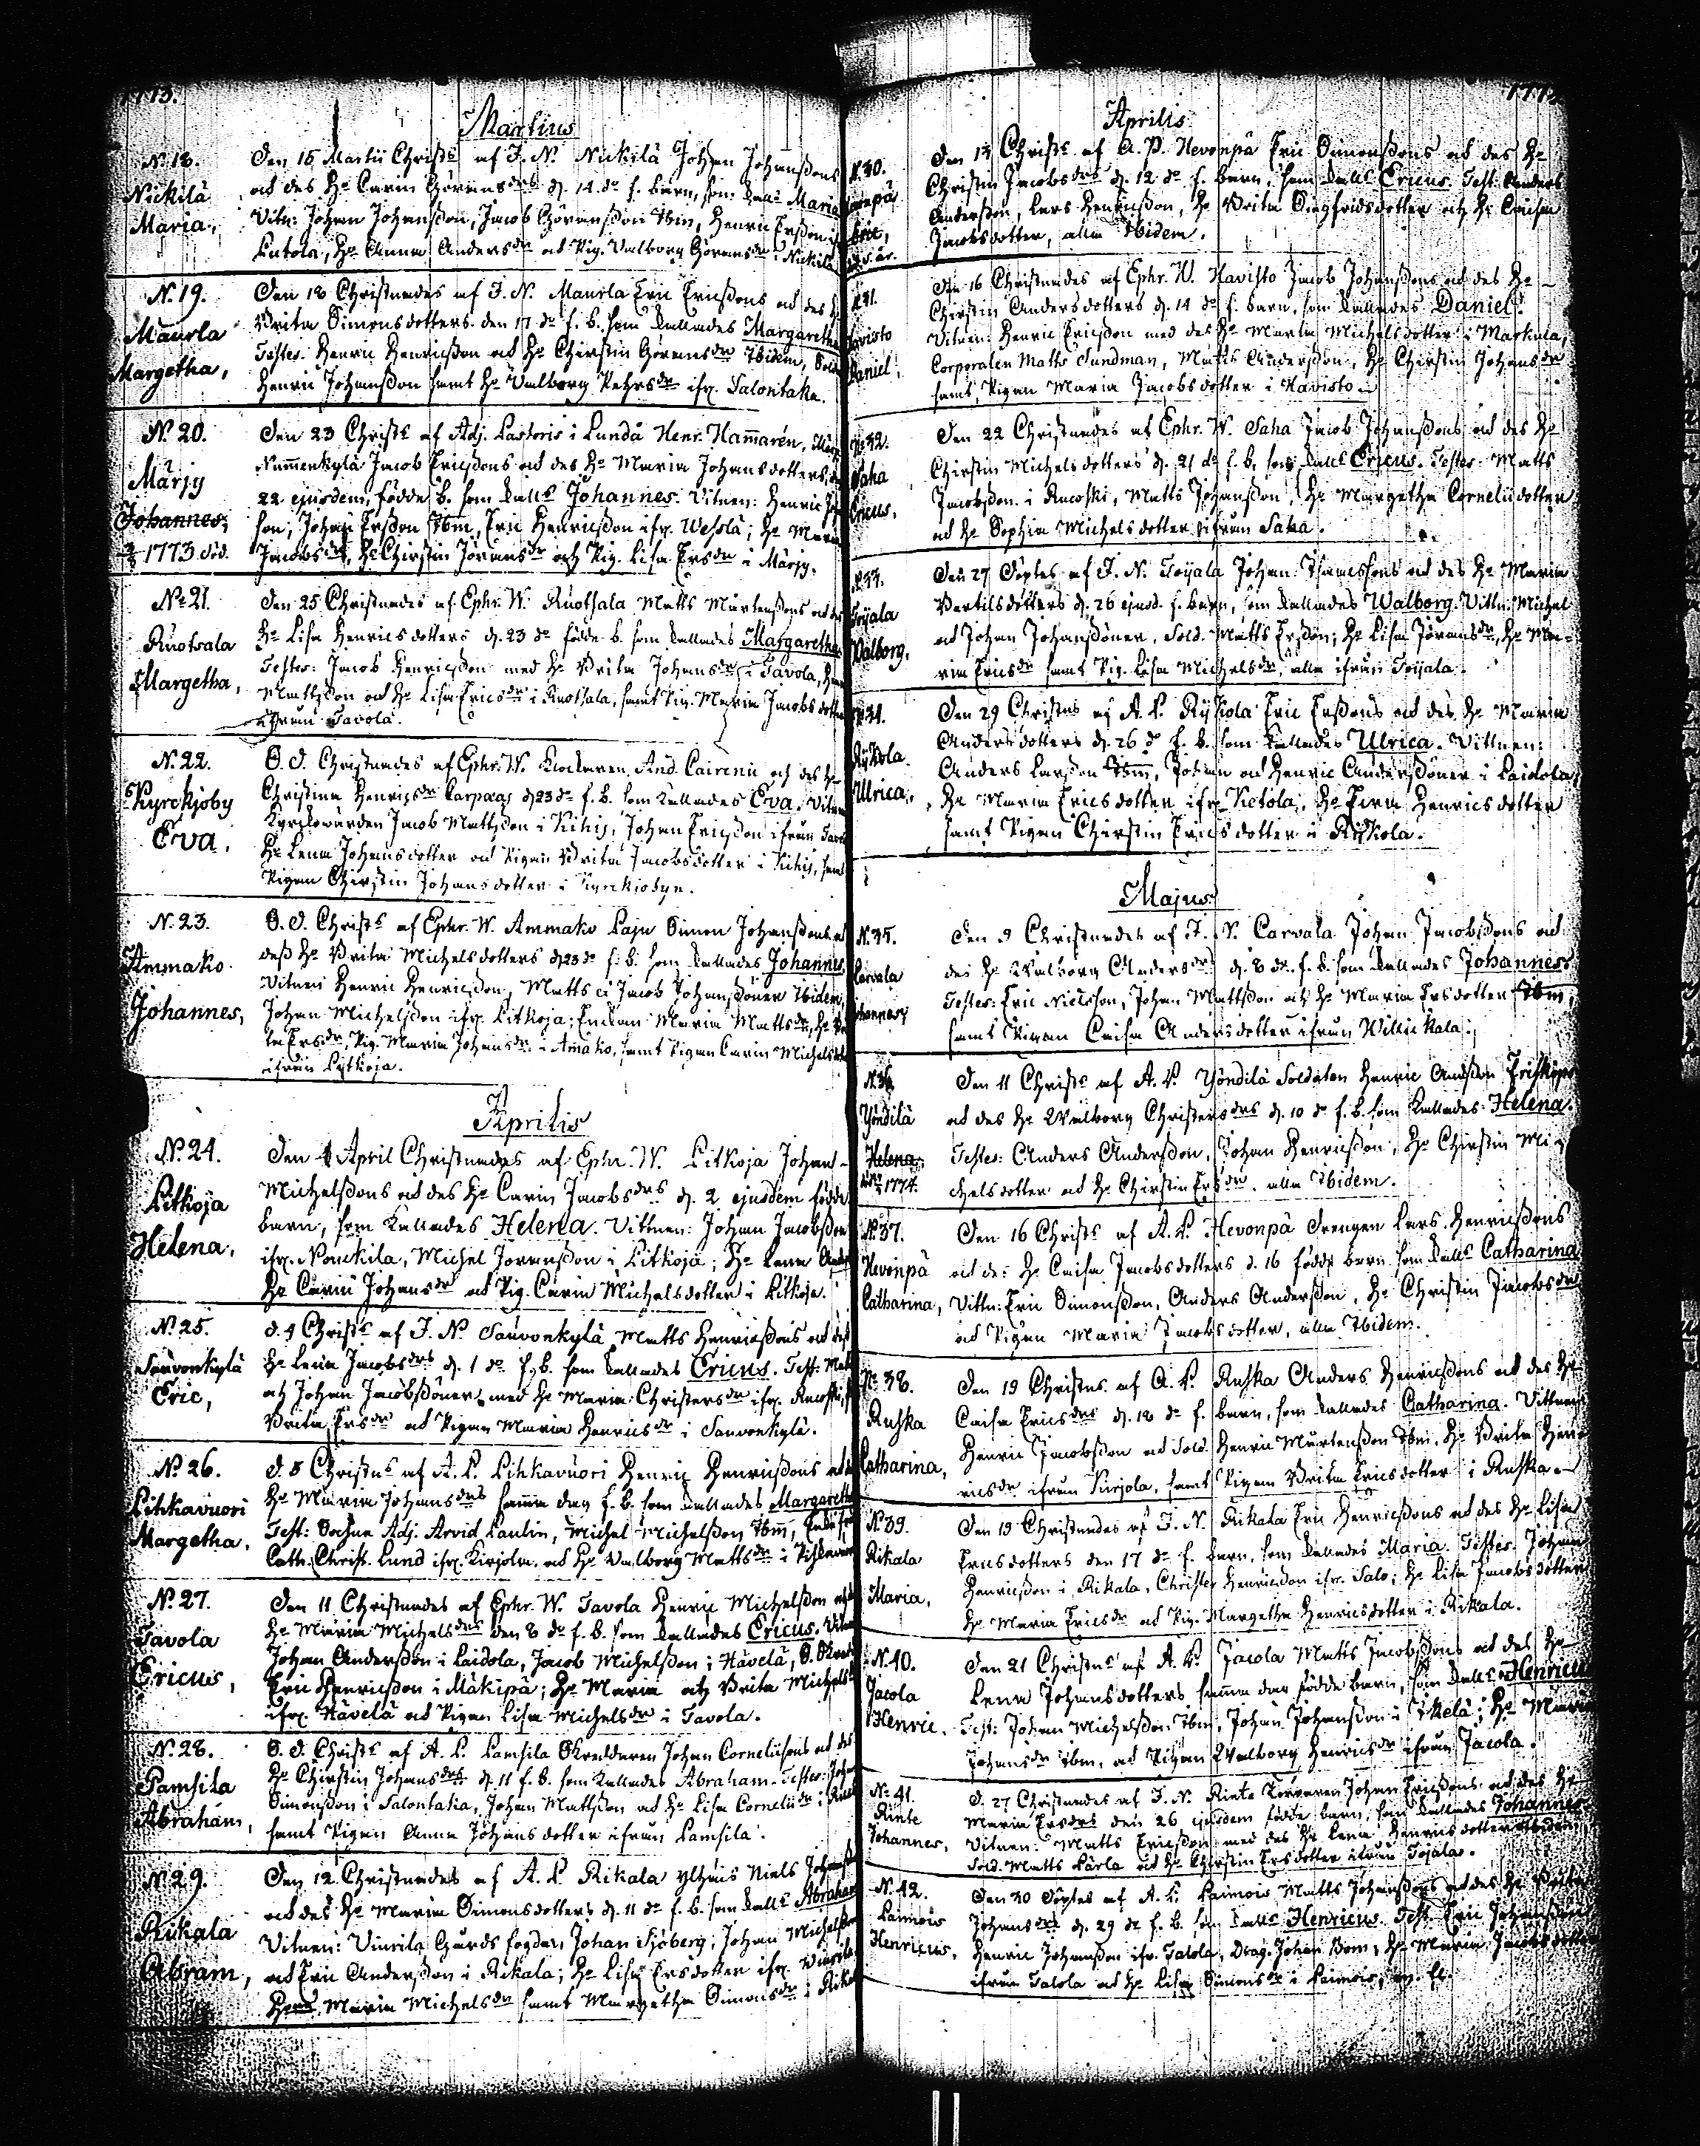 1773.
Martius
N:o 18.
Nickilä
Maria,
Den 15 Martii Christ:s af J. N. Nickilä Johan Johanßons
och des H:o Carin Göransdrs d. 14 d:o f. barn, som kall:s Maria
Vitn: Johan Johanßon, Jacob Göranßon Ibm, Henric Erßon
Lutola, H:o Anna Andersdr och Pig. Valborg Göransdr i Nickilä
N:o 19.
Maurla
Margetha,
Den 18 Christnades af J. N. Maurla Eric Ericßons och des H:
Brita Simonsdotters den 17 d:o f. b. som kallades Margaretha
Testes: Henric Henricßon och H:o Christin Göransdr Ibidem,
Henric Johanßon samt H:o Valborg Pehrsdr ifr. Salontaka.
N:o 20.
Märjy
Johannes,
1773 död.
Den 23 Christ:s af Adj. Pastoris i Lundå Henr. Hammarén,
Nummenkylä Jacob Ericßons och des H:o Maria Johansdotters,
22 ejusdem, födde b. som kall:s Johannes. Vitnen: Henric
son, Johan Erßon Ibm, Eric Henricßon ifr. Weßlä; H:o Maria
Jacobsdr, H:o Chirstin Jöransdr och Pig. Lisa Ersdr i Märjy.
N:o 21.
Ruotsala
Margetha,
Den 25 Christnades af Ephr. W. Ruotsala Matts Mårtenßons och des
H:o Lisa Henricsdotters d. 23 d:o födde b. som kallades Margaretha
Testes: Jacob Henricßon med H:o Brita Johansdr i Tavola,
Mattsßon och H:o Lisa Ericsdr i Ruotsala, samt Pig. Maria Jacobsdotter
ifrån Tavola.
N:o 22.
Kyrckjoby
Eva,
E. d. Christnades af Ephr. W. Klockaren And. Cairenii och des H:o
Christina Henricsdr Carpaeas d. 23 d:o f. b. som kallades Eva. Vitn
Kyrckowärden Jacob Mattsßon i Kihis, Johan Ericßon ifrån
H:o Lena Johansdotter och Pigan Brita Jacobsdotter i Kihis, samt
Pigan Chirstin Johansdotter i Kyrckiobyn.
N:o 23.
Ammako
Johannes,
E. d. Christ:s af Ephr. W. Ammako Paju Simon Johanßons och
deß H:o Brita Michelsdotters d. 23 d:o f. b. som kallades Johannes
Vitnen Henric Henricßon, Matts å Jacob Johanßöner Ibidem,
Johan Michelßon ifr. Pitkoja; Enckan Maria Mattsdr, H:o
ta Ersdr, Pig. Maria Johansdr i Amako, samt Pigan Carin Michelsd
ifrån Pitkoja.
Aprilis
N:o 24.
Pitkoja
Helena,
Den 4 April Christnades af Ephr. W. Pitkoja Johan
Michelßons och des H:o Carin Jacobsdrs d. 2 ejusdem födde
barn, som kallades Helena. Vittnen: Johan Jacobßon
ifr. Nouckila, Michel Jöranßon i Pitkoja; H:o Lena
H:o Carin Johansdr och Pig. Carin Michelsdotter i Pitkoja.
N:o 25.
Sauvonkylä
Eric,
d. 4 Christ:s af J. N. Sauvonkylä Matts Henricßons och deß
H:o Lena Jacobsdrs d. 1 d:o f. b. som kallades Ericus. Test:
och Johan Jacobßöner med H:o Maria Christersdr ifr.
Brita Ersdr och Pigan Maria Henricsdr i Sauvonkylä.
N:o 26.
Pihkavuori
Margetha,
d. 5 Christn:s af A. P. Pihkavuori Henric Henricßons och
H:o Maria Johansdrs samma dag f. b. som kallades Margaretha
Test: Sochne Adj. Arvid Paulin, Michel Michelßon Ibm,
Cath. Christ. Lund ifr. Kirjola och H:o Valborg Mattsdr i Pihkavuori
N:o 27.
Tavola
Ericus,
Den 11 Christnades af Ephr. W. Tavola Henric Michelßon och
H:o Maria Michelsdrs den 8 d:o f. b. som kallades Ericus.
Johan Anderßon i Laidola, Jacob Michelßon i Hävelä,
Eric Henricßon i Mäkipä; H:o Maria och Brita Michels
ifr. Hävelä och Pigan Lisa Michelsdr i Tavola.
N:o 28.
Pamsila
Abraham,
E. d. Christ:s af A. P. Pamsila Skreddaren Johan Corneliißons och des
H:o Chirstin Johansdrs d. 11 f. b. som kallades Abraham. Testes: Johan
Simonßon i Salontaka, Johan Mattsßon och H:o Lisa Corneliidr i
samt Pigan Anna Johansdotter ifrån Pamsila.
N:o 29.
Rikala
Abram,
Den 12 Christnades af A. P. Rikala Ylhäis Niels Johanß
och des H:o Maria Simonsdotters d. 11 d:o f. b. som kall:s Abraham
Vitnen: Vinrilä Gårds fogden, Johan Sjöberg, Johan Michelßon
och Eric Anderßon i Rikala; H:o Lisa Ersdotter ifr. Vinrila
Maria Michelsdr samt Margetha Simonsdr i Rikala
Aprilis
N:o 30.
Hevonpä
Eric,
Den 13 Christ:s af A. P. Hevonpä Eric Simonßons och des H:o
Christin Jacobsdrs d. 12 d:o f. barn, som kall:s Ericus. Test. Anders
Anderßon, Lars Henricßon, H:o Brita Sigfridsdotter och H:o Caisa
Jacobsdotter, alla Ibidem.
N:o 31.
Havisto
Daniel,
Den 16 Christnades af Ephr. W. Havisto Jacob Johanßons och des H:o
Chirstin Andersdotters d. 14 d:o f. barn, som kallades Daniel.
Vitnen: Henric Ericßon med des H:o Maria Michelsdotter i Markula,
Corporalen Matts Sundman, Matts Anderßon, H:o Chirstin Johansdr
samt Pigan Maria Jacobsdotter i Havisto.
N:o 32.
Saha
Ericus,
Den 22 Christnades af Ephr. W. Saha Jacob Johanßons och des H:o
Chirstin Michelsdotters d. 21 d:o f. b. som kall:s Ericus. Testes: Matts
Jacobßon i Ruroski, Matts Johanßon, H:o Margetha Corneliidotter
och H:o Sophia Michelsdotter ifrån Saha.
N:o 33.
Toijala
Valborg,
Den 27 Döptes af J. N. Toijala Johan Thomeßons och des H:o Maria
Bertilsdotters d. 26 ejusd. f. barn, som kallades Walborg. Vittn: Michel
och Johan Johanßöner, Sold. Matts Erßon; H:o Lisa Jöransdr, H:o Ma-
ria Ericsdr samt Pig. Lisa Michelsdr, alla ifrån Toijala.
N:o 34.
Ryskola
Ulrica,
Den 29 Christn:s af A. P. Ryskola Eric Erßons och des H:o Maria
Andersdotters d. 26 d:o f. b. som kallades Ulrica. Vittnen:
Anders Larßon Ibm, Johan och Henric Anderßöner i Laidola,
H:o Maria Ericsdotter ifr. Ketola, H:o Eva Henricsdotter
samt Pigan Chirstin Ericsdotter i Ryskola.
Majus
N:o 35.
Carvala
Johannes
Den 9 Christnades af J. N. Carvala Johan Jacobßons och
des H:o Walborg Andersdrs d. 8 d:o f. b. som kallades Johannes
Testes: Eric Nielsson, Johan Mattßon och H:o Maria Ersdotter Ibm,
samt Pigan Caisa Andersdotter ifrån Willickala.
N:o 36.
Yöndilä
Helena,
1774.
Den 11 Christ:s af A. P. Yöndilä Soldaten Henric Andßon Friskopp
och des H:o Walborg Christersdrs d. 10 d:o f. b. som kallades Helena.
Testes: Anders Anderßon, Johan Henricßon, H:o Chirstin Mi-
chelsdotter och H:o Chirstin Ersdr, alla Ibidem.
N:o 37.
Hevonpä
Catharina,
Den 16 Christ:s af A. P. Hevonpä Drengen Lars Henricßons
och des H:o Caisa Jacobsdotters d. 16 födde barn som kall:s Catharina
Vittn: Eric Simonßon, Anders Anderßon, H:o Christin Jacobsdr
och Pigan Maria Jacobsdotter, alla Ibidem.
N:o 38.
Ruska
Catharina,
Den 19 Christn:s af A. P. Ruska Anders Henricßons och des H:o
Caisa Ericsdrs d. 18 d:o f. barn, som kallades Catharina. Vittnen
Henric Jacobßon och Sold. Henric Mårtenßon Ibm, H:o Brita Hen-
ricsdr ifrån Kirjola, samt Pigan Brita Ericsdotter i Ruska.
N:o 39.
Rikala
Maria,
Den 19 Christnades af J. N. Rikala Eric Henricßons och des H:o Lisa
Ericsdotters den 17 d:o f. barn, som kallades Maria. Testes. Johan
Henricßon i Rikala, Christer Henricßon ifr. Salo; H:o Lisa Jacobsdotter
H:o Maria Ericsdr och Pig. Margetha Henricsdotter i Rikala.
N:o 40.
Jacola
Henric.
Den 21 Christn:s af A. P. Jacola Matts Jacobßons och des H:o
Lena Johansdotters samma dag födde barn, som kall:s Henricus
Test: Johan Michelßon Ibm, Johan Johanßon i Ikelä; H:o Maria
Johansdr Ibm, och Pigan Walborg Henricsdr ifrån Jacola.
N:o 41.
Rinte
Johannes,
d. 27 Christnades af J. N. Rinte Torparen Johan Ericßons och des H:o
Maria Ersdrs den 26 ejusdem födde barn, som kallades Johannes.
Vitnen: Matts Ericßon med des H:o Lena Henricsdotter Ibidem,
Sold. Matts Pärla och H:o Chirstin Ersdotter ifrån Tojala.
N:o 42.
Laimois
Henricus,
Den 30 Döptes af A. P. Laimois Matts Johanßons och des H:o Brita
Johansdrs d. 29 d:o f. b. som kall:s Henricus. Test. Eric Johanßon
Henric Johanßon ifr. Talola, Drag. Johan Bom, H:o Maria Jacobsdotter
ifrån Talola och H:o Lisa Simonsdr i Laimois,